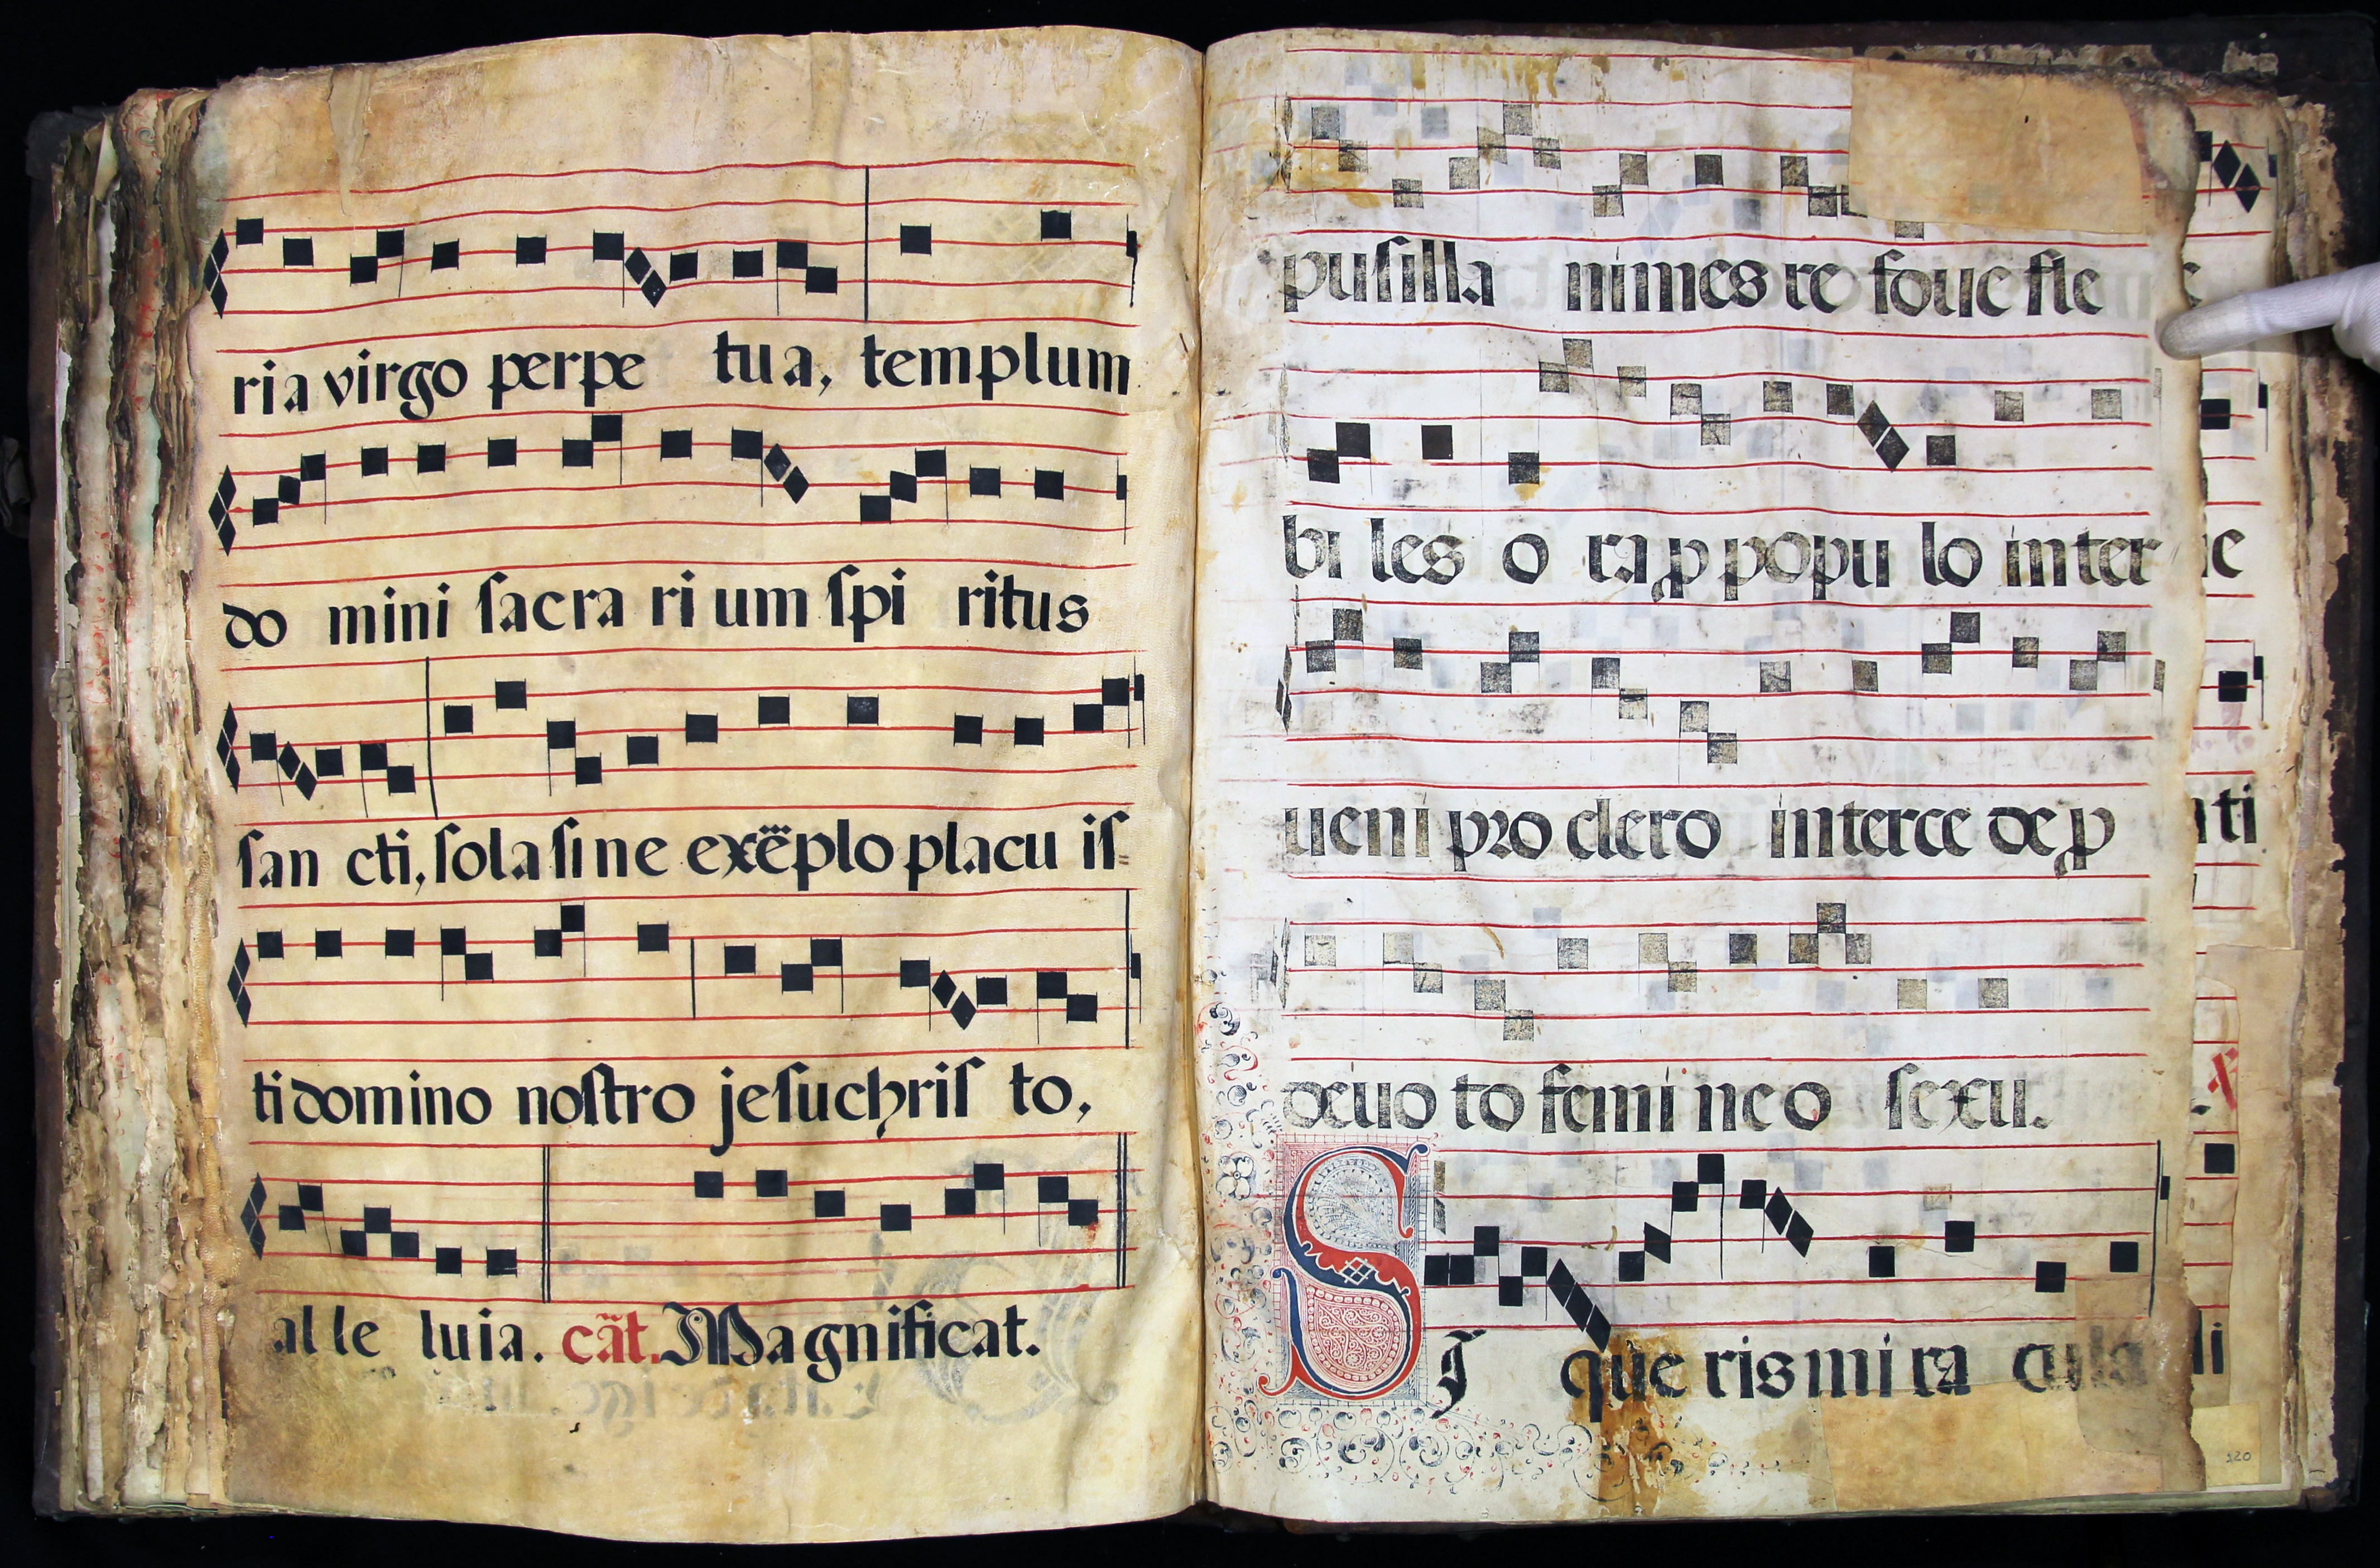 ria virgo perpe tua, templum
do mini ſacra ri um ſpi ritus
ſan cti, ſola ſi ne exẽplo placu iſ=
ti domino noſtro jeſuchriſ to,
al le luia. cãt. Magnificat.
puſilla nimes re foue fle
bi les o ra ꝓ popu lo inter
ueni pro clero interce de ꝓ
deuo to femi ne o ſexu.
SI que ris mi ra cula
ne
nti
li
120